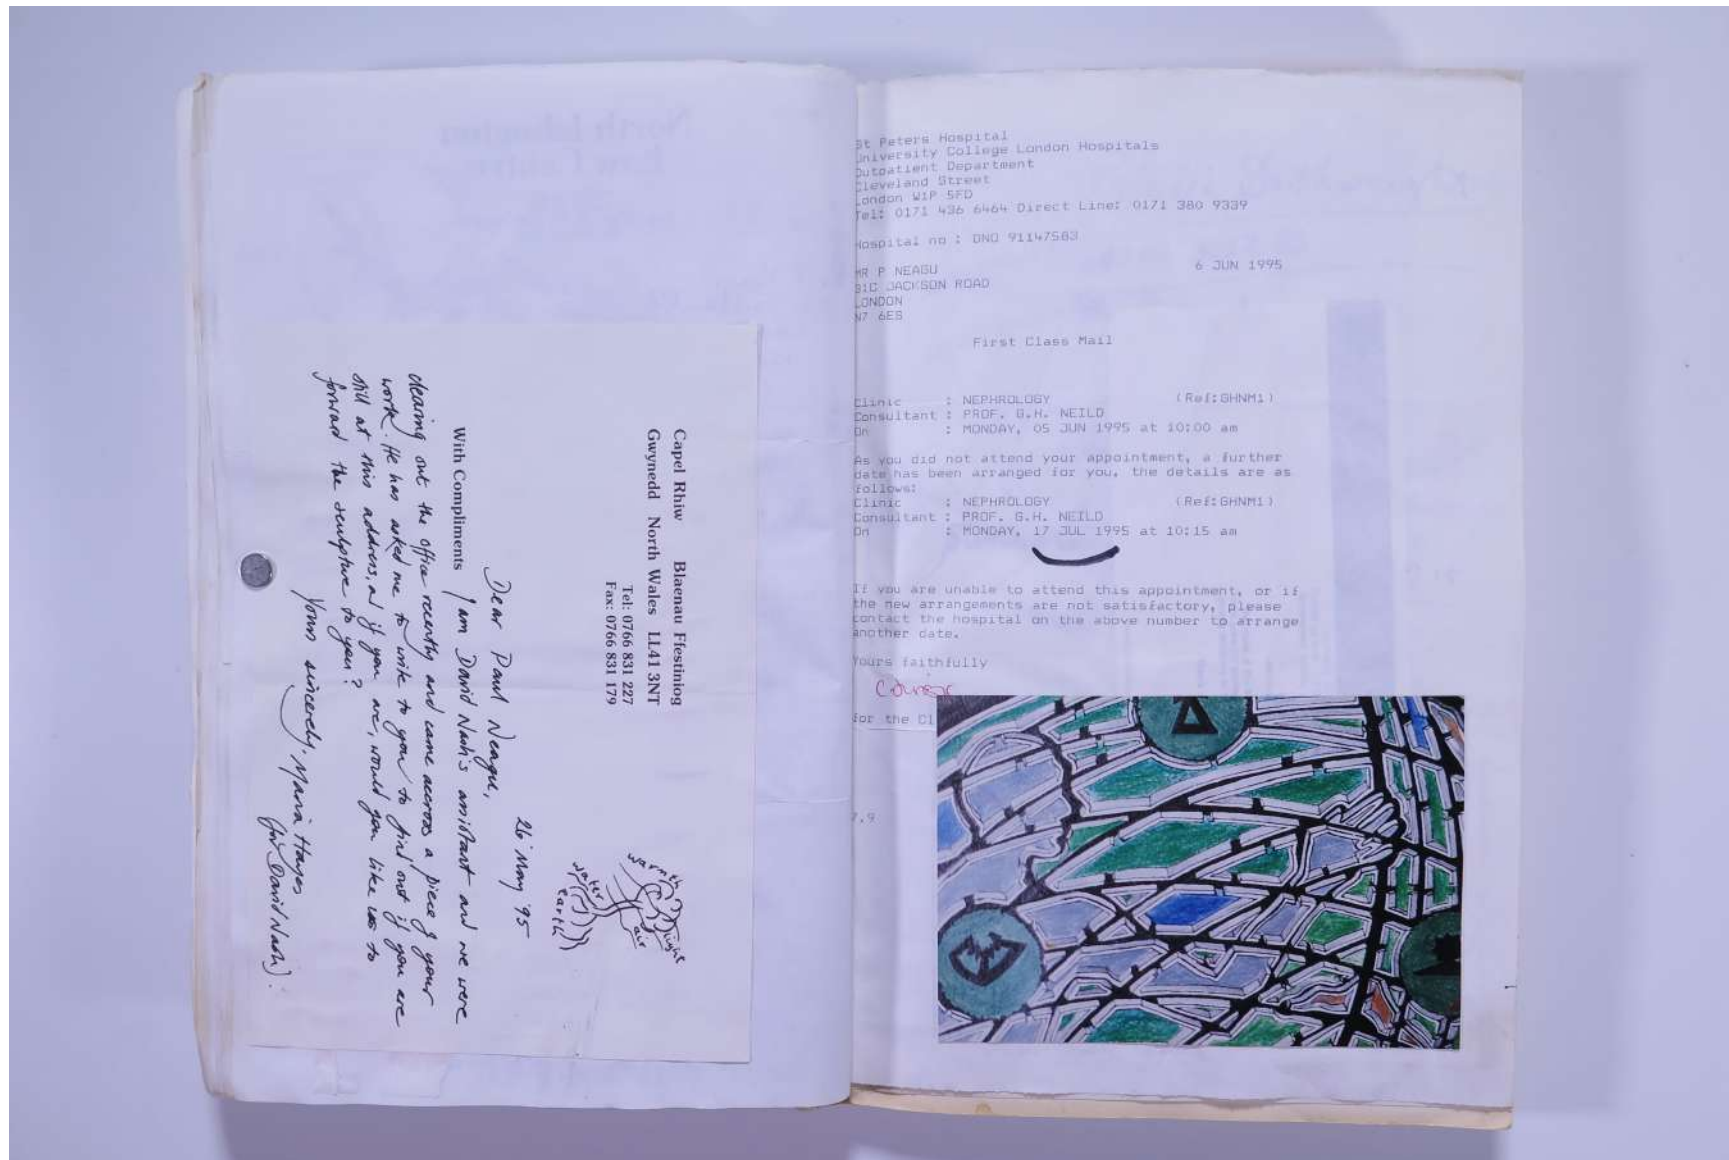 Capel Rhiw Blaenau Ffestiniog
Gwynedd North Wales LL41 3NT
Tel: 0766 831 227
Fax: 0766 831 179
warmth
light
air
water
earth
26 May '95
With Compliments
Dear Paul Neagu,
I am David Nash's assistant and we were
clearing out the office recently and came accross a piece of your
work. He has asked me to write to you to find out if you are
still at this address, and if you are, would you like us to
forward the sculpture to you?
Yours sincerely, Maria Hayes
(for David Nash).
St Peters Hospital
University College London Hospitals
Outpatient Department
Cleveland Street
London W1P 5FD
Tel: 0171 436 6464 Direct Line: 0171 380 9339
Hospital no : DNO 91147583
MR P NEAGU 6 JUN 1995
31C JACKSON ROAD
LONDON
N7 6ES
First Class Mail
Clinic : NEPHROLOGY (Ref:GHNM1)
Consultant : PROF. G.H. NEILD
On : MONDAY, 05 JUN 1995 at 10:00 am
As you did not attend your appointment, a further
date has been arranged for you, the details are as
follows:
Clinic : NEPHROLOGY (Ref:GHNM1)
Consultant : PROF. G.H. NEILD
On : MONDAY, 17 JUL 1995 at 10:15 am
If you are unable to attend this appointment, or if
the new arrangements are not satisfactory, please
contact the hospital on the above number to arrange
another date.
Yours faithfully
for the Cl
7.9